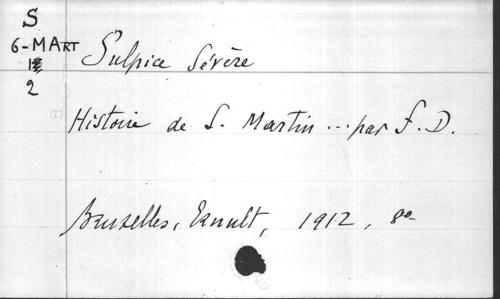 S
6-MArt
2
Sulpice Sévère
Histoire de S. Martin ... par F. D.
Bruxelles, 1912, 8º